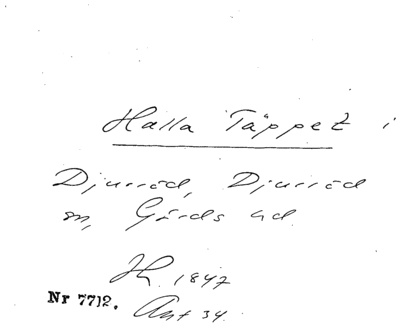 Halla Täppet i
Djurröd, Djurröd
sn, Gärds hd.
Jh. 1847
Nr 7712. Akt 34.